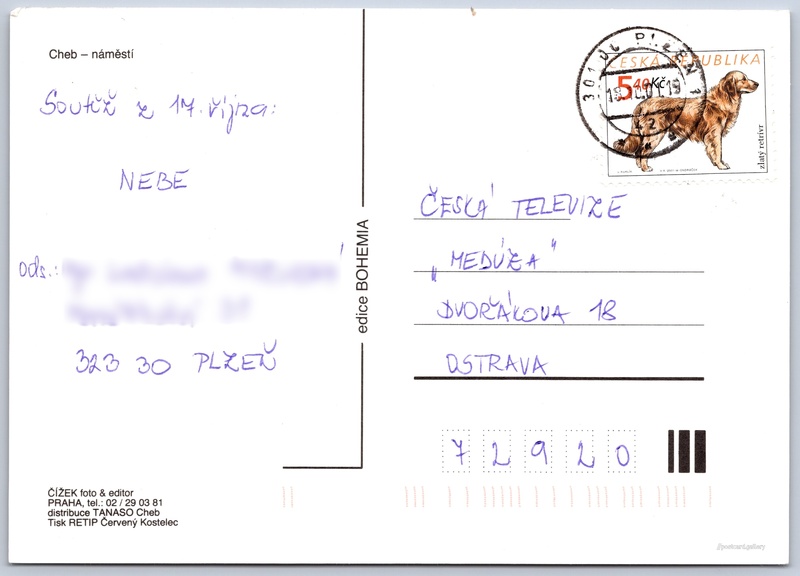 Cheb – náměstí
Soutěž z 17. října:
NEBE
ods.:
323 30 PLZEŇ
ČÍŽEK foto & editor
PRAHA, tel.: 02 / 29 03 81
distribuce TANASO Cheb
Tisk RETIP Červený Kostelec
edice BOHEMIA
301 00 PLZEŇ 1
ČESKÁ REPUBLIKA
5,40 Kč
zlatý retrívr
ČESKÁ TELEVIZE
„MEDÚZA“
DVOŘÁKOVA 18
OSTRAVA
72920
//postcard.gallery